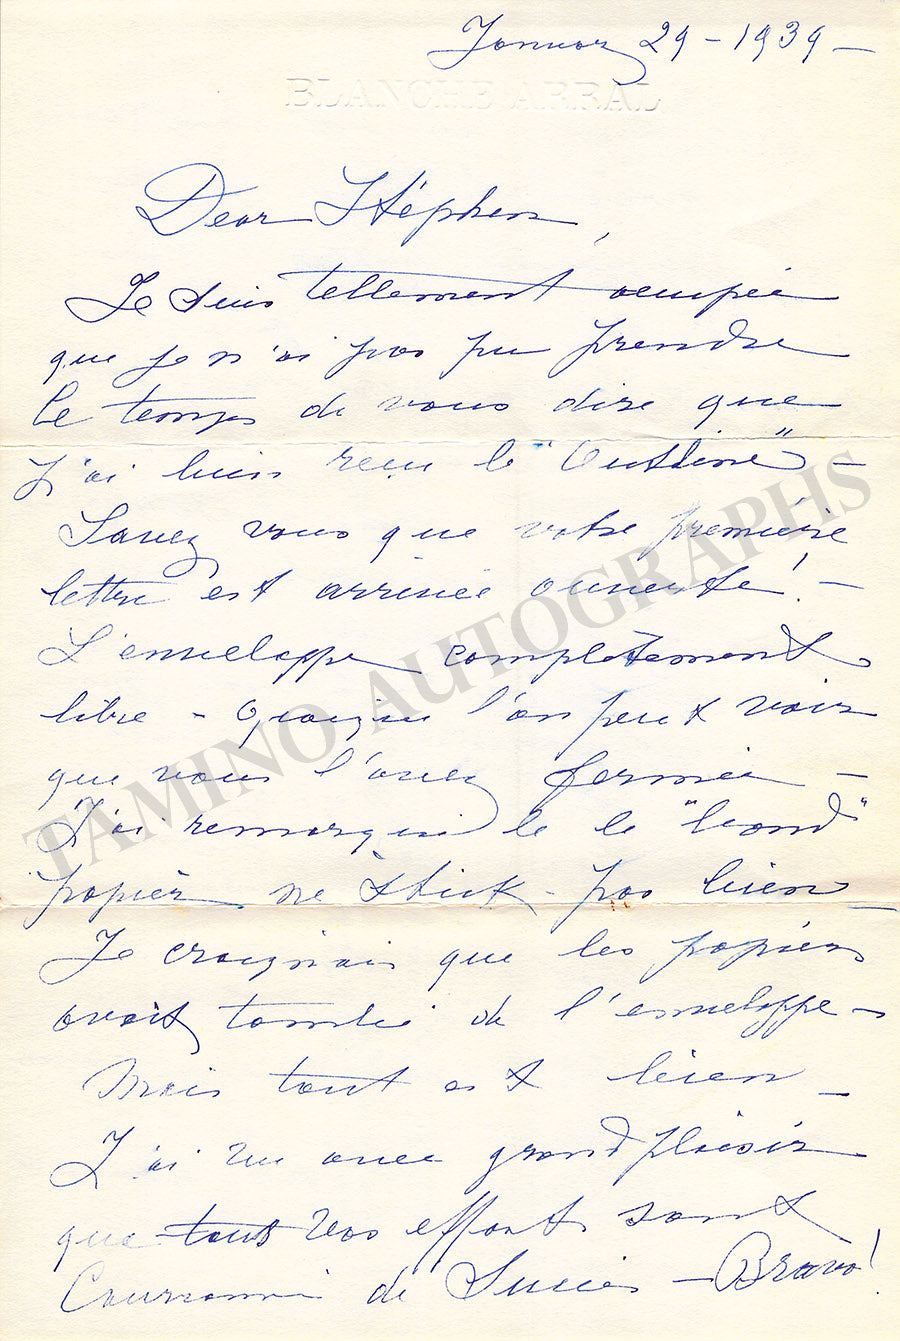 January 29 - 1939 -
BLANCHE ARRAL
Dear Stéphen,
Je suis tellement occupée
que je n'ai pas pu prendre
le temps de vous dire que
j'ai bien reçu le "Outline" -
Savez vous que votre première
lettre est arrivée ouverte! -
L'enveloppe complètement
libre - quoique l'on peut voir
que vous l'avez fermée -
J'ai remarqué le le "bond"
papier ne stick pas bien -
Je craignais que les papiers
avait tombé de l'enveloppe -
Mais tout est bien -
J'ai vu avec grand plaisir
que tous vos efforts sont
Couronné de Succès - Bravo!
TAMINO AUTOGRAPHS